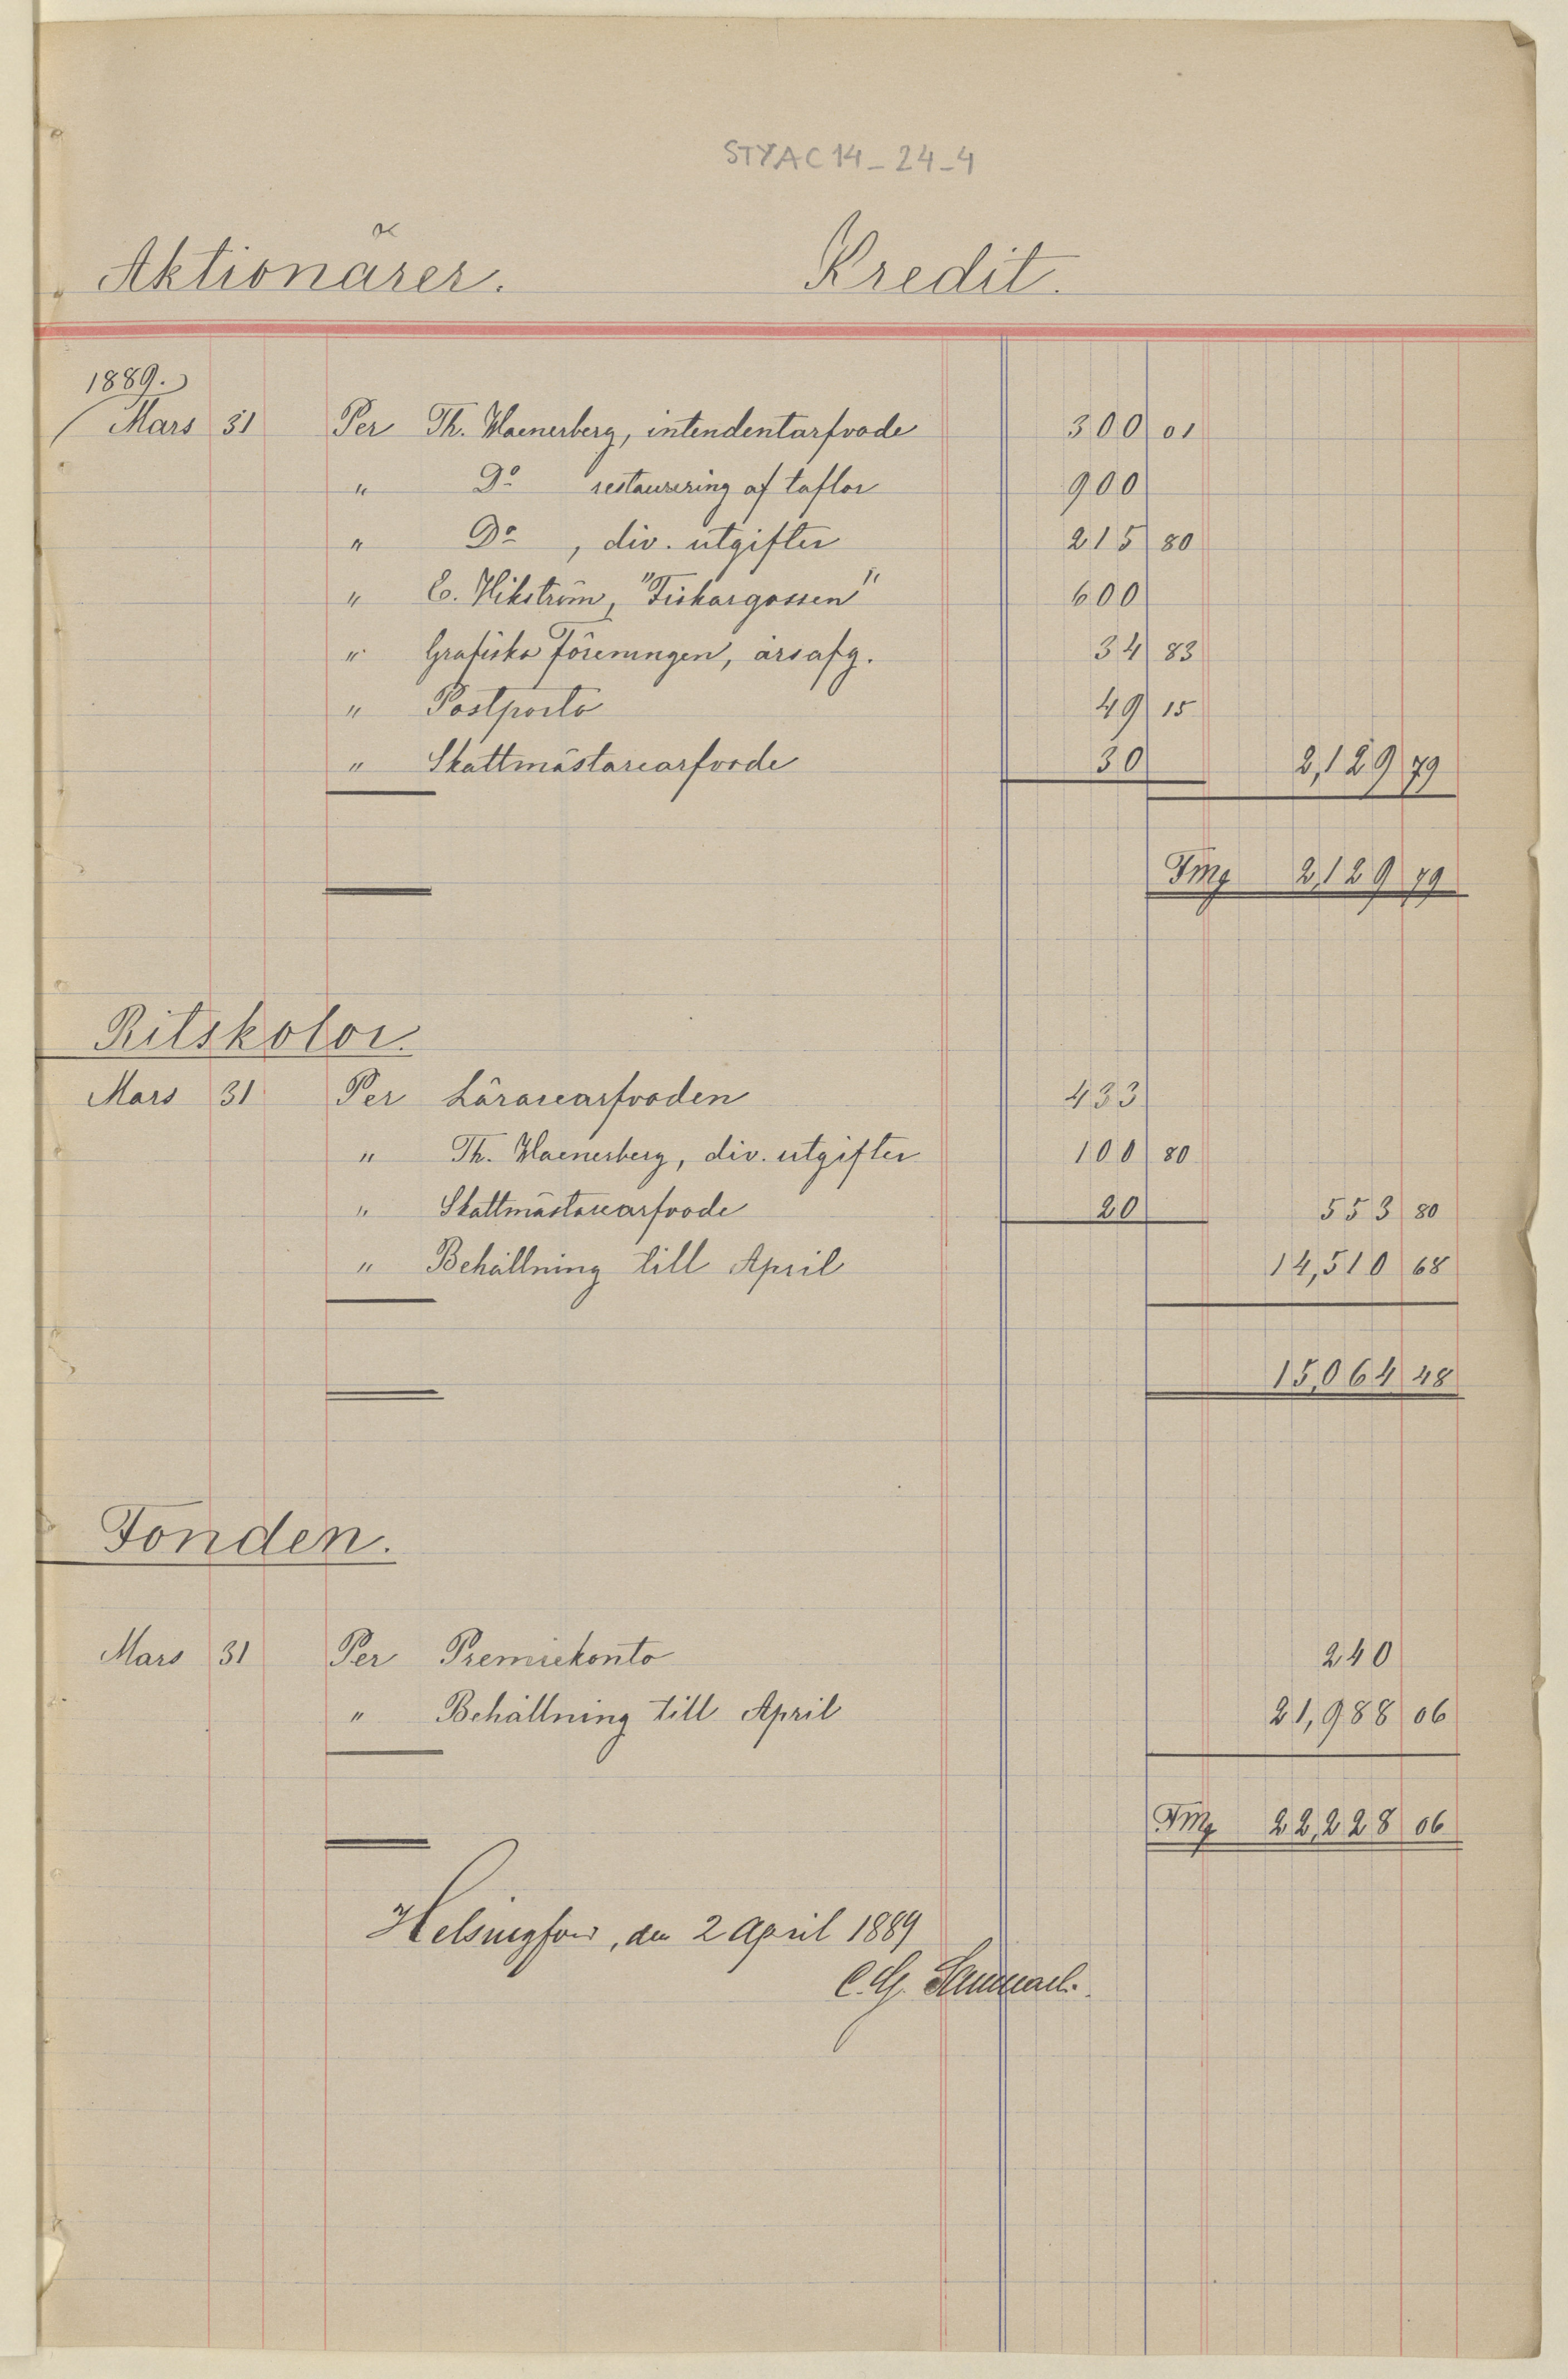 STYAC14-24-4
Aktionärer. Kredit.
1889.
Mars 31 Per Th. Waenerberg, intendentarfvode 300 01
" Do restaurering af taflor 900
" Do , div. utgifter 215 80
" E. Wikström, "Fiskargossen" 600
" Grafiska föreningen, årsafg. 34 83
" Postporto 49 15
" Skattmästarearfvode 30 2,129 79
Fmg 2,129 79
Ritskolor.
Mars 31 Per Lärarearfvoden 433
" Th. Waenerberg, div. utgifter 100 80
" Skattmästarearfvode 20 553 80
" Behållning till April 14,510 68
15,064 48
Fonden.
Mars 31 Per Premiekonto 240
" Behållning till April 21,988 06
Fmg 22,228 06
Helsingfors, den 2 April 1889
C. G.